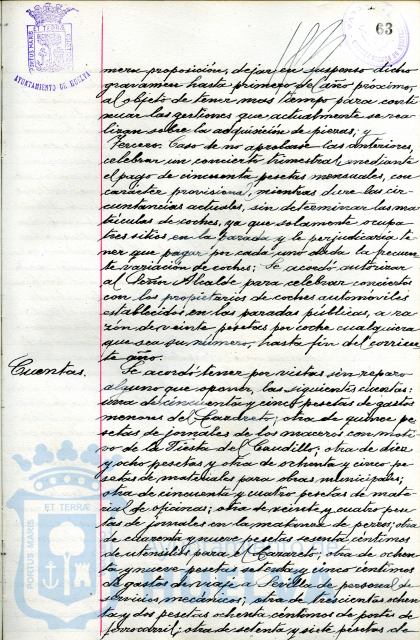 63
AYUNTAMIENTO DE HUELVA
mera proposición, dejar en suspenso dicho
gravamen hasta primero del año próximo,
al objeto de tener mas tiempo para conti
nuar las gestiones que actualmente se rea
lizan sobre la adquisición de piezas; y
Tercero. Caso de no aprobarse las anteriores,
celebrar un concierto trimestral, mediante
el pago de cincuenta pesetas mensuales, con
carácter provisional, mientras dure las cir-
cunstancias actuales, sin determinar las ma
trículas de coches, ya que solamente ocupa
tres sitios en la parada y le perjudicaría te
ner que pagar por cada uno dada la frecuen
te variación de coches; Se acordó autorizar
al Señor Alcalde para celebrar conciertos
con los propietarios de coches automóviles
establecidos en las paradas públicas, a ra
zón de veinte pesetas por coche cualquiera
que sea su número, hasta fin del corrien
te año.
Cuentas.
Se acordó tener por vistas sin reparo
alguno que oponer, las siguientes cuentas:
una de cincuenta y cinco pesetas de gastos
menores del Lazareto; otra de quince pe
setas de jornales de los maceros con moti
vo de la Fiesta del Caudillo; otra de diez
y ocho pesetas y otra de ochenta y cinco pe
setas de materiales para obras municipales;
otra de cincuenta y cuatro pesetas de mate
rial de oficinas; otra de veinte y cuatro pese
tas de jornales en la matanza de perros; otra
de cuarenta y nueve pesetas sesenta céntimos
de utensilios para el Lazareto; otra de ochen
ta y nueve pesetas setenta y cinco céntimos
de gastos de viaje a Sevilla de personal de
servicios mecánicos; otra de trescientas ochen
ta y dos pesetas ochenta céntimos de portes de
ferrocarril; otra de setenta y siete pesetas de
PORTUS MARIS
ET TERRÆ